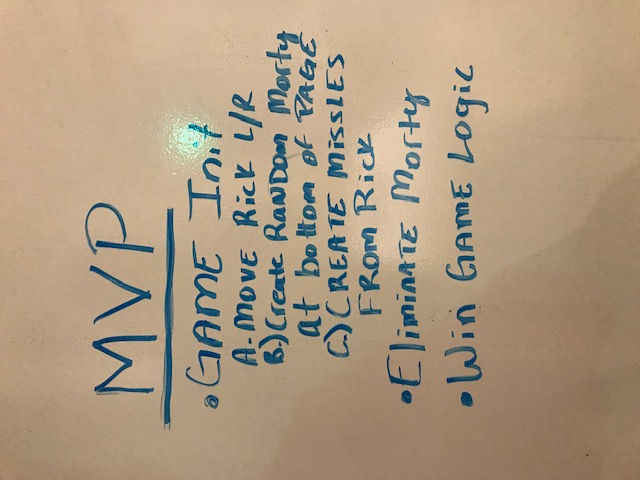 MVP
• GAME Init
A. MOVE Rick L/R
B.) Create RANDOM Morty
at bottom of PAGE
C.) CREATE MISSLES
FROM Rick
• Eliminate Morty
• Win GAME Logic